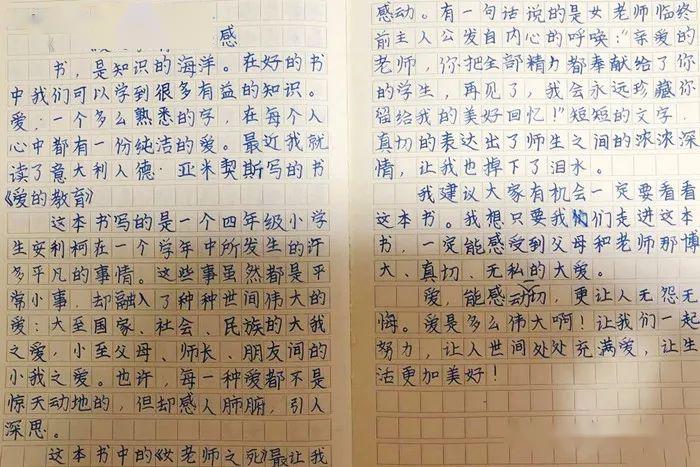 感
书，是知识的海洋。在好的书
中我们可以学到很多有益的知识。
爱，一个多么熟悉的字，在每个人
心中都有一份纯洁的爱。最近我就
读了意大利人德·亚米契斯写的书
《爱的教育》
这本书写的是一个四年级小学
生安利柯在一个学年中所发生的许
多平凡的事情。这些事虽然都是平
常小事，却融入了种种世间伟大的
爱：大至国家、社会、民族的大我
之爱，小至父母、师长、朋友间的
小我之爱。也许，每一种爱都不是
惊天动地的，但却感人肺腑，引人
深思。
这本书中的《女老师之死》最让我
感动。有一句话说的是女老师临终
前主人公发自内心的呼唤："亲爱的
老师，你把全部精力都奉献给了你
的学生，再见了，我会永远珍藏你
留给我的美好回忆!"短短的文字，
真切的表达出了师生之间的浓浓深
情，让我也掉下了泪水。
我建议大家有机会一定要看看
这本书。我想只要我们走进这本
书，一定能感受到父母和老师那博
大、真切、无私的大爱。
爱，能感动切，更让人无怨无
悔。爱是多么伟大啊！让我们一起
努力，让人世间处处充满爱，让生
活更加美好！